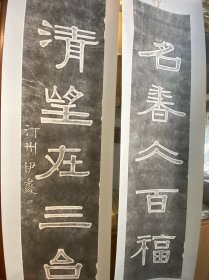 名春介百福
清望在三台
汀州伊秉